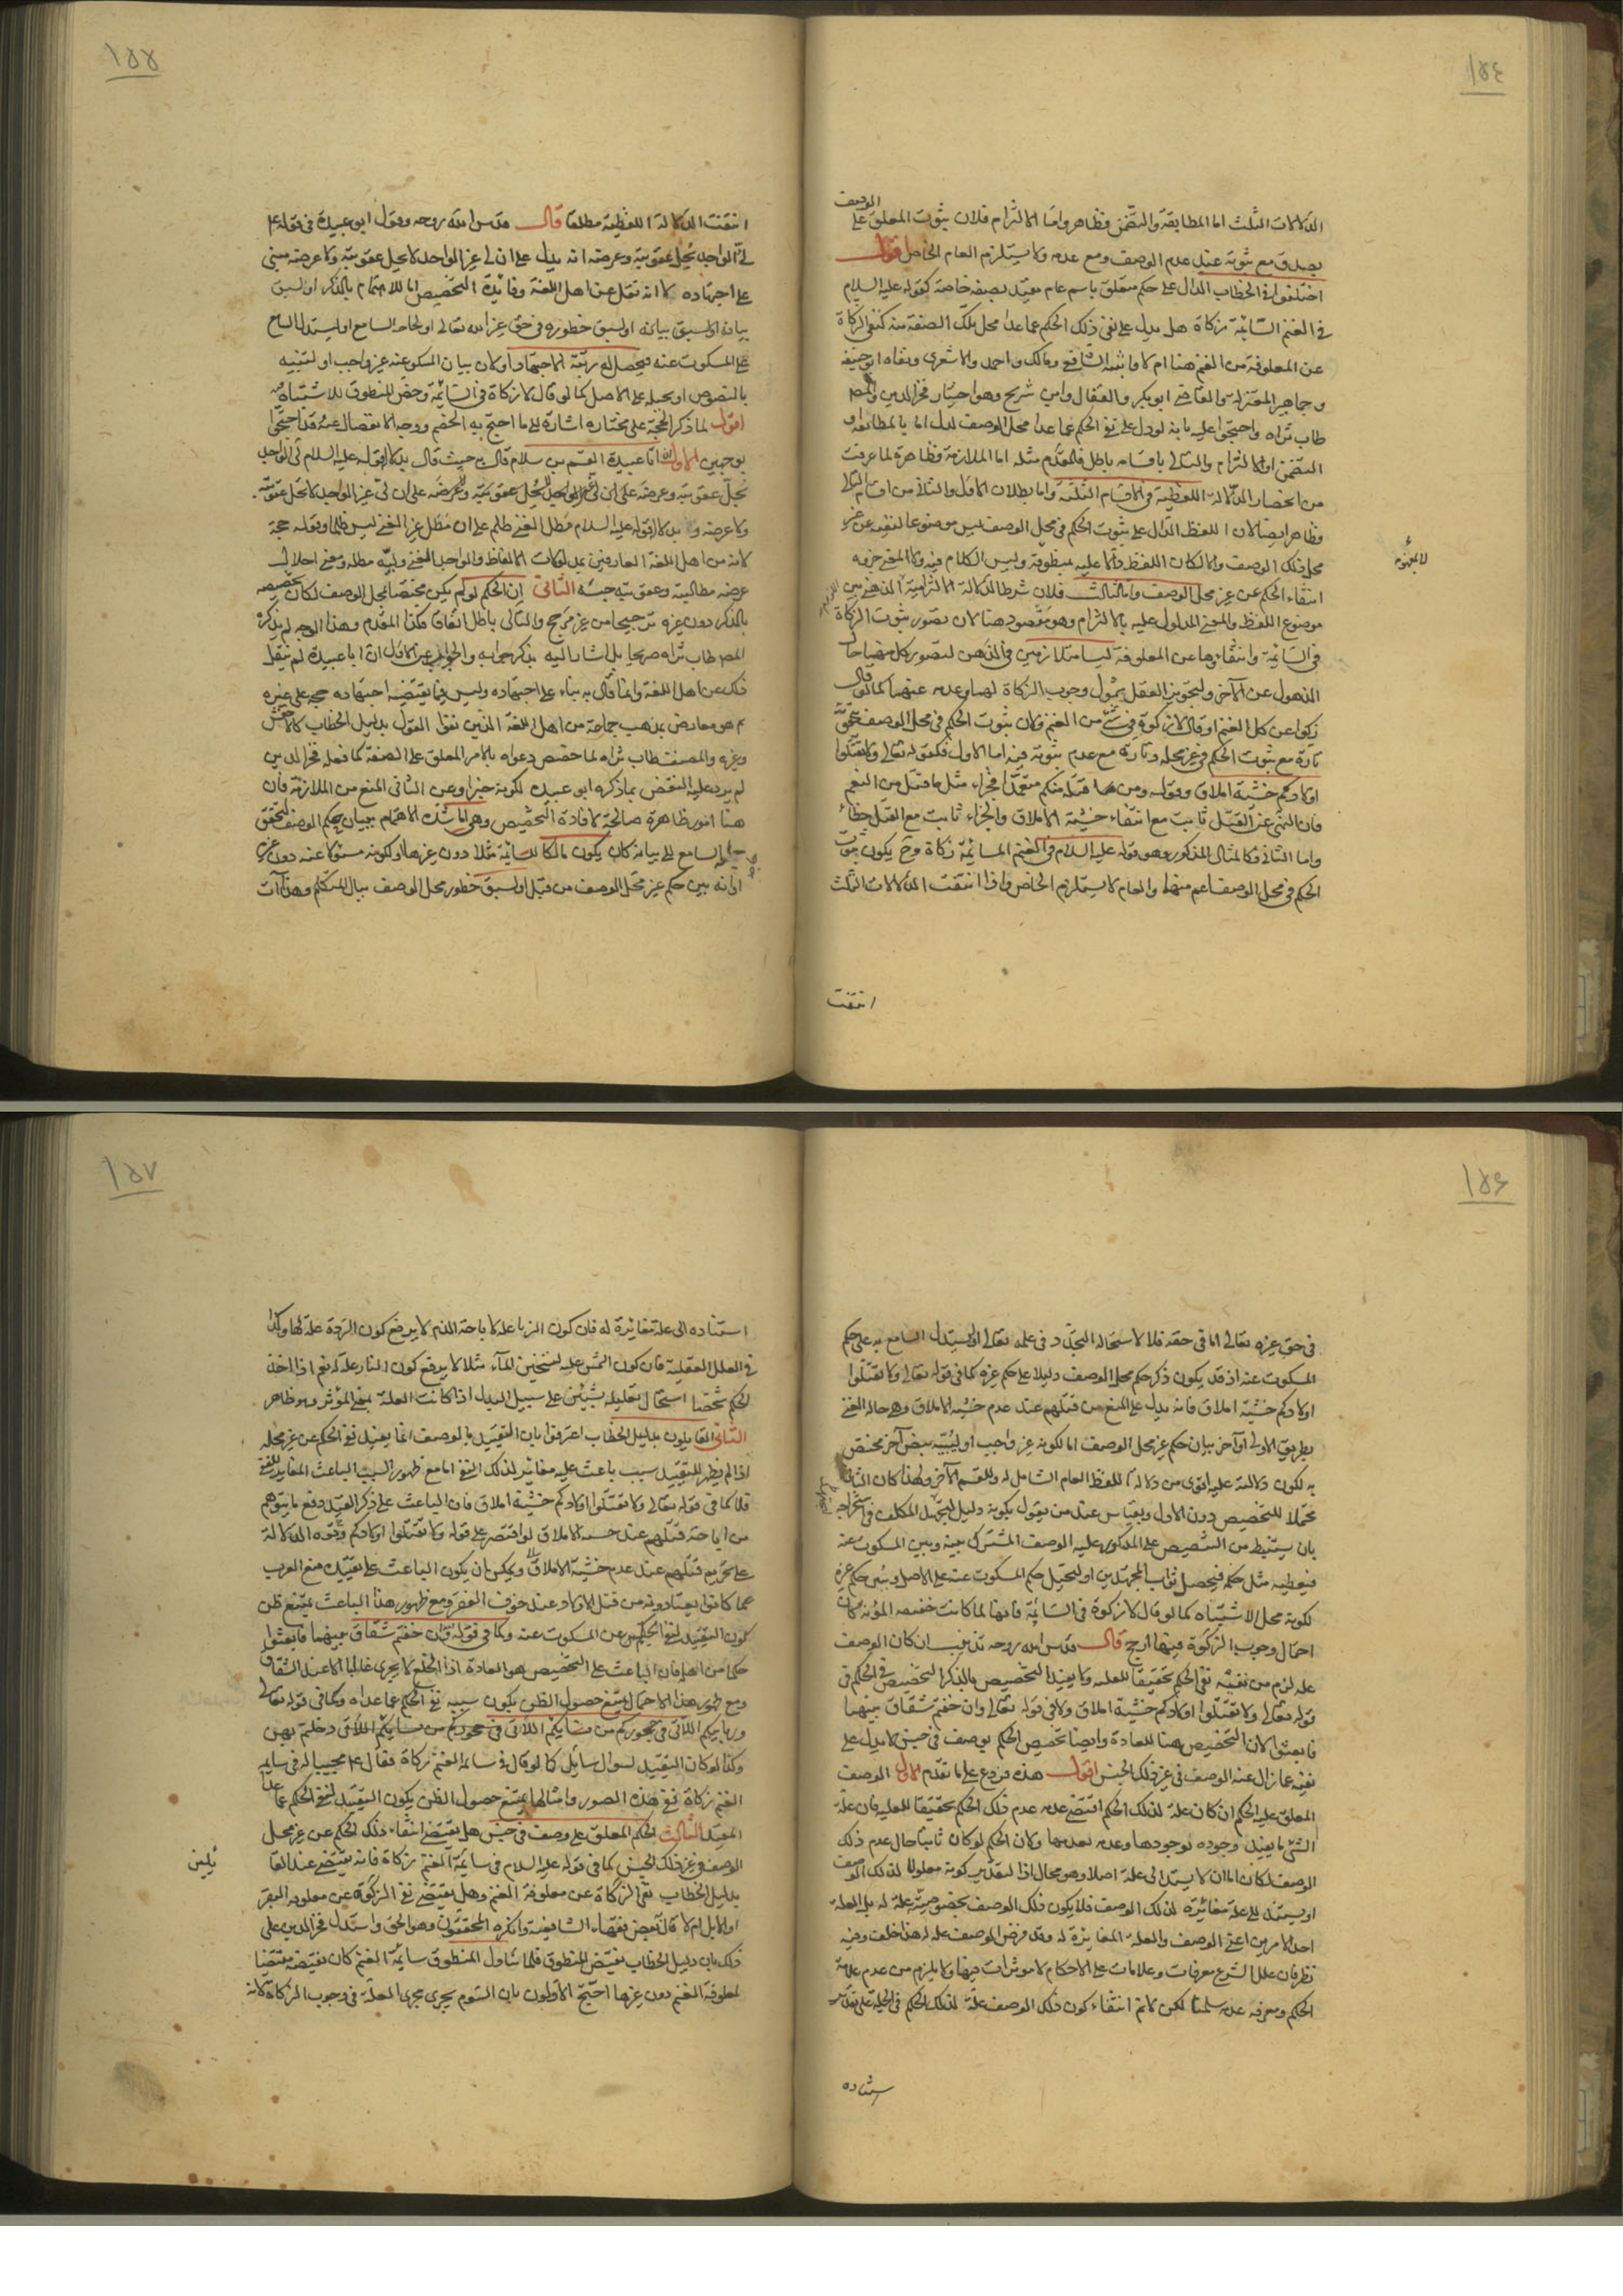 ١٥٤
الوصف
الدلالات الثلث اما المطابقة والتضمن فظاهر واما الالتزام فلان ثبوت المعلق على
يصدق مع ثبوته عند عدم الوصف ومع عدمه ولا يستلزم العام الخاص اقول
اختلفوا في الخطاب الدال على حكم متعلق باسم عام مقيد بصفة خاصة كقوله عليه السلام
في الغنم السائمة زكاة هل يدل على نفى ذلك الحكم عما عدا محل تلك الصفة منه كنفى الزكاة
عن المعلوفة من الغنم هنا ام لا فاثبته الشافعي ومالك واحمد والاشعرى ونفاه ابو حنيفه
وجماهير المعتزلة والقاضى ابو بكر والقفال وابن شريح وهو اختيار فخر الدين والمص
طاب ثراه واحتجوا عليه بانه لو دل على نفى الحكم عما عدا محل الوصف لدل اما بالمطابقة او
التضمن او الالتزام والتالى باقسامه باطل فالمقدم مثله اما الملازمة فظاهرة لما عرفت
من انحصار الدلالة اللفظية في الاقسام الثلثة واما بطلان الاول والثانى من اقسام التالى
فظاهر ايضا لان اللفظ الدال على ثبوت الحكم في محل الوصف ليس موضوعا لنفيه عن غير
محل ذلك الوصف والا لكان اللفظ دالا عليه بمنطوقه وليس الكلام فيه ولا المعنى جزوه
انتفاء الحكم عن غير محل الوصف واما الثالث فلان شرط الدلالة الالتزامية الذهنى بين
موضوع اللفظ والمعنى المدلول عليه بالالتزام وهو مفقود هنا لان تصور ثبوت الزكاة
في السائمة وانتفاؤها عن المعلوفة ليسا متلازمين في الذهن لتصور كل منهما حال
الذهول عن الآخر ولتجويز العقل شمول وجوب الزكاة لهما وعدمه عنهما كما لو قال
زكوا عن كل الغنم او قال لا زكوة في شئ من الغنم ولان ثبوت الحكم في محل الوصف يتحقق
تارة مع ثبوت الحكم في غير محله وتارة مع عدم ثبوته فيه اما الاول فكقوله تعالى ولا تقتلوا
اولادكم خشية املاق وقوله ومن قتله منكم متعمدا فجزاء مثل ما قتل من النعم
فان النهى عن القتل ثابت مع انتفاء خشية الاملاق والجزاء ثابت مع القتل خطأ
واما الثانى فكالمثال المذكور وهو قوله عليه السلام في الغنم السائمة زكاة وح يكون ثبوت
الحكم في محل الوصف اعم منهما والعام لا يستلزم الخاص واذا انتفت الدلالات الثلث
انتفت
١٥٥
انتفت الدلالة اللفظية مطلقا قال قدس الله روحه وقول ابو عبيدة في قوله ع
لى الواجد يحل عقوبته وعرضه انه يدل على ان لى غير الواجد لا يحل عقوبته ولا عرضه مبنى
على اجتهاده لا انه نقل عن اهل اللغة وفائدة التخصيص اما للاهتمام بالذكر او لسبق
بيانه او لسبق خطوره في حق غير الله تعالى او لحاجة السامع او ليستدل السامع
على المسكوت عنه فيحصل له رتبة الاجتهاد او لان بيان المسكوت عنه غير واجب او لتبيينه
بالنصوص او يحيله على الاصل كما لو قال لا زكاة في السائمة وخص المنطوق للاشتباه
اقول لما ذكر الحجة على مختاره اشار الى ما احتج به الخصم ووجه الانفصال عنه وقد احتجوا
بوجهين الاول ان ابا عبيدة القسم بن سلام قال به حيث قال بدلالة قوله عليه السلام لى الواجد
يحل عقوبته وعرضه على ان لى غير الواجد لا يحل عقوبته
ولا عرضه وبدلالة قوله عليه السلام مطل الغنى ظلم على ان مطل غير الغنى ليس ظلما وقوله حجة
لانه من اهل اللغة العارفين بمدلولات الالفاظ والواجد الغنى وليه مطله ومعنى احلال
عرضه مطالبته وعقوبته حبسه الثانى ان الحكم لو لم يكن مختصا بمحل الوصف لكان تخصيصه
بالذكر دون غيره ترجيحا من غير مرجح والتالى باطل اتفاقا فكذا المقدم وهذا الوجه لم يذكره
المص طاب ثراه صريحا بل اشار اليه بذكر جوابه والجواب عن الاول ان ابا عبيدة لم ينقل
ذلك عن اهل اللغة وانما قال به بناء على اجتهاده وليس ما يقتضيه اجتهاده حجة على غيره
ثم هو معارض بمذهب جماعة من اهل اللغة الذين نفوا القول بدليل الخطاب كالاخفش
وغيره والمصنف طاب ثراه لما خصص دعواه بالامر المعلق على الصفة كما فعله فخر الدين
لم يرد عليه النقض بما ذكره ابو عبيدة لكونه خبرا وعن الثانى المنع من الملازمة فان
هنا امور ظاهرة صالحة لافادة التخصيص وهى اما شدة الاهتمام ببيان حكم الوصف لتحقق
السامع الى بيانه كان يكون مالكا للسائمة مثلا دون غيرها او لكونه مسئولا عنه دون غيره
او انه بين حكم غير محل الوصف من قبل او لسبق خطور محل الوصف ببال المتكلم وهذا آت
١٥٦
في حق غيره تعالى اما في حقه فلا لاستحالة التجدد في علمه تعالى او ليستدل السامع به على حكم
المسكوت عنه اذ قد يكون ذكر حكم محل الوصف دليلا على حكم غيره كما في قوله تعالى ولا تقتلوا
اولادكم خشية املاق فانه يدل على المنع من قتلهم عند عدم خشية الاملاق وهى حالة الغنى
بطريق الاولى او آخر بيان حكم غير محل الوصف اما لكونه غير واجب او ليبينه بنص آخر مختص
به لكون دلالته عليه اقوى من دلالة اللفظ العام الشامل له وللقسم الآخر ولهذا كان الثانى
محتملا للتخصيص دون الاول وبقياس عند من يقول بكونه دليلا ليجتهد المكلف في استخراجه
بان يستنبط من التنصيص على المذكور عليه الوصف المشترك بينه وبين المسكوت عنه
فيعطيه مثل حكمه فيحصل ثواب المجتهدين او ليحيل حكم المسكوت عنه على الاصل ويبين حكم غيره
لكونه محل الاشتباه كما لو قال لا زكوة في السائمة فانها لما كانت خفيفه المؤنه كان
احتمال وجوب الزكوة فيها ارجح قال قدس الله روحه تذنيب ان كان الوصف
علة لزم من نفيه نفى الحكم تحقيقا للعلية ولا يفيد التخصيص بالذكر التخصيص في الحكم في
قوله تعالى ولا تقتلوا اولادكم خشية املاق ولا في قوله تعالى وان خفتم شقاق بينهما
فابعثوا لان التخصيص هنا للعادة وايضا تخصيص الحكم بوصف في جنس لا يدل على
نفيه عما زال عنه الوصف في غير ذلك الجنس اقول هذه فروع على ما تقدم الاول الوصف
المعلق عليه الحكم ان كان علة لذلك الحكم اقتضى عدمه عدم ذلك الحكم تحقيقا للعلية فان علة
الشئ ما يفيد وجوده لوجودها وعدمه لعدمها ولان الحكم لو كان ثابتا حال عدم ذلك
الوصف لكان اما ان لا يستند الى علة اصلا وهو محال اذ التقدير كونه معلولا لذلك الوصف
او يستند الى علة مغائرة لذلك الوصف فلا يكون ذلك الوصف بخصوصيته علة له بل العلة
احد الامرين اعنى الوصف والعلة المغايرة له وقد فرض الوصف علة له هذا خلف وفيه
نظر فان علل الشرع معرفات وعلامات على الاحكام لا مؤثرات فيها ولا يلزم من عدم علامة
الحكم ومعرفه عدمه سلمنا لكن لا تم انتفاء كون ذلك الوصف علة لذلك الحكم في الجملة على تقدير
استناده
١٥٧
استناده الى علة مغائرة له فان كون الزنا علة لاباحة الدم لا يدفع كون الردة علة لها وكذا
في العلل العقلية فان كون الشمس علة لتسخين الماء مثلا لا يدفع كون النار علة له نعم اذا اخذ
الحكم شخصا استحال تعليله بشيئين على سبيل البدل اذا كانت العلة بمعنى المؤثر وهو ظاهر
الثانى القايلون بدليل الخطاب اعترفوا بان التقييد بالوصف انما يفيد نفى الحكم عن غير محله
اذا لم يظهر للتقييد سبب باعث عليه مغاير لذلك النفى اما مع ظهور السبب الباعث المغاير للنفى
فلا كما في قوله تعالى ولا تقتلوا اولادكم خشية املاق فان الباعث على ذكر القيد دفع ما يتوهم
من اباحة قتلهم عند خشية الاملاق لو اقتصر على قوله ولا تقتلوا اولادكم وقوة الدلالة
على تحريم قتلهم عند عدم خشية الاملاق ويمكن ان يكون الباعث على تقييده منع العرب
عما كانوا يعتادونه من قتل الاولاد عند خوف الفقر ومع ظهور هذا الباعث يمتنع ظن
كون التقييد لنفى الحكم عن المسكوت عنه وكما في قوله فان خفتم شقاق بينهما فابعثوا
حكما من اهله فان الباعث على التخصيص هو العادة اذ الخلع لا يجرى غالبا الا عند الشقاق
ومع ظهور هذا الاحتمال يمتنع حصول الظن بكون سببه نفى الحكم عما عداه وكما في قوله تعالى
وربايبكم اللاتى في حجوركم من نسايكم اللاتى دخلتم بهن
وكذا لو كان التقييد لسؤال سايل كما لو قال في سائمة الغنم زكاة فقال ع مجيبا له في سايمة
الغنم زكاة ففى هذه الصور وامثالها يمتنع حصول الظن بكون التقييد لنفى الحكم عما عدا
المقيد الثالث الحكم المعلق على وصف في جنس هل يقتضى انتفاء ذلك الحكم عن غير محل
الوصف في غير ذلك الجنس كما في قوله عليه السلام في سائمة الغنم زكاة فانه يقتضى عند القا
يلين
بدليل الخطاب نفى الزكاة عن معلوفة الغنم وهل يقتضى نفى الزكوة عن معلوفة البقر
او الابل ام لا قال بعض فقهاء الشافعية وانكره المحققون وهو الحق واستدل فخر الدين على
ذلك بان دليل الخطاب نقيض المنطوق فلما تناول المنطوق سائمة الغنم كان نقيضه مقتضيا
لمعلوفة الغنم دون غيرها احتج الاولون بان السوم يجرى مجرى العلة في وجوب الزكاة لانه